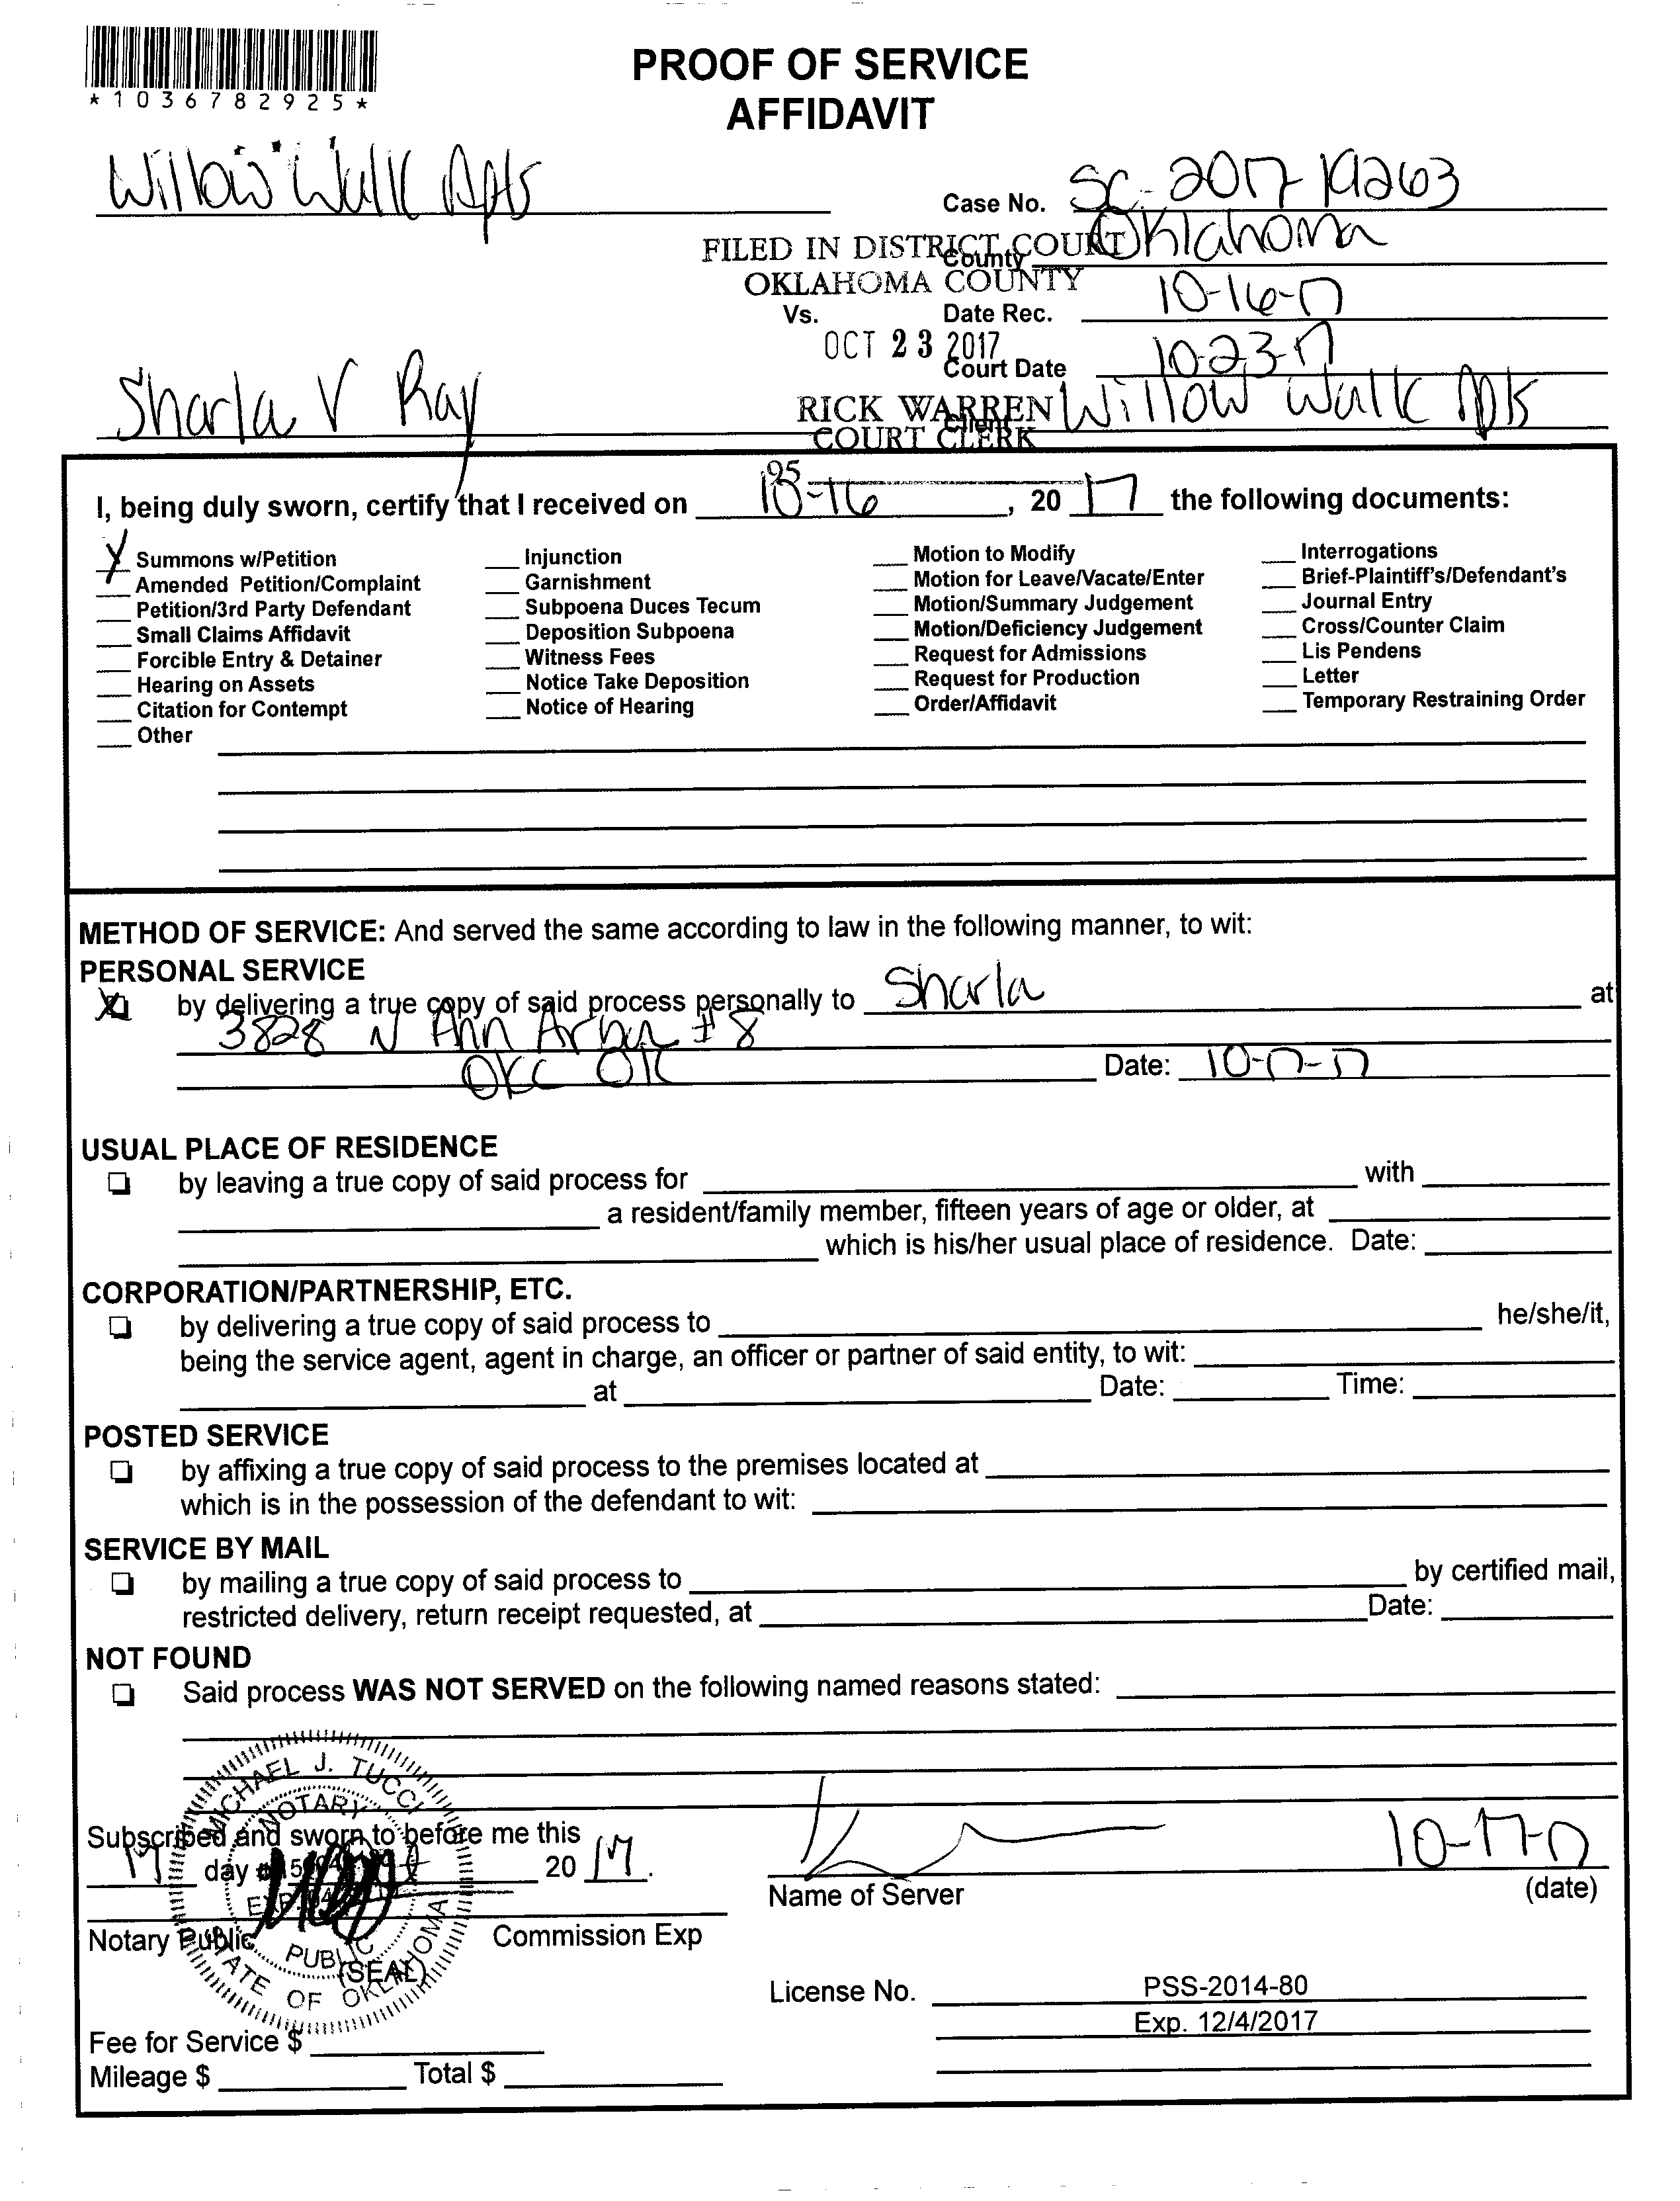 *1036782925*
PROOF OF SERVICE
AFFIDAVIT
Willow Walk Apts
Case No. SC-2017-19263
FILED IN DISTRICT COURT
OKLAHOMA COUNTY
County Oklahoma
Vs.
Date Rec. 10-16-17
OCT 23 2017
Court Date 10-23-17
Sharla V Ray
RICK WARREN
COURT CLERK
Client Willow Walk Apts
95
I, being duly sworn, certify that I received on 10-16, 20 17 the following documents:
X Summons w/Petition
Amended Petition/Complaint
Petition/3rd Party Defendant
Small Claims Affidavit
Forcible Entry & Detainer
Hearing on Assets
Citation for Contempt
Other
Injunction
Garnishment
Subpoena Duces Tecum
Deposition Subpoena
Witness Fees
Notice Take Deposition
Notice of Hearing
Motion to Modify
Motion for Leave/Vacate/Enter
Motion/Summary Judgement
Motion/Deficiency Judgement
Request for Admissions
Request for Production
Order/Affidavit
Interrogations
Brief-Plaintiff's/Defendant's
Journal Entry
Cross/Counter Claim
Lis Pendens
Letter
Temporary Restraining Order
METHOD OF SERVICE: And served the same according to law in the following manner, to wit:
PERSONAL SERVICE
X by delivering a true copy of said process personally to Sharla at
3828 N Ann Arbor #8
OKC OK Date: 10-17-17
USUAL PLACE OF RESIDENCE
by leaving a true copy of said process for with
a resident/family member, fifteen years of age or older, at
which is his/her usual place of residence. Date:
CORPORATION/PARTNERSHIP, ETC.
by delivering a true copy of said process to he/she/it,
being the service agent, agent in charge, an officer or partner of said entity, to wit:
at Date: Time:
POSTED SERVICE
by affixing a true copy of said process to the premises located at
which is in the possession of the defendant to wit:
SERVICE BY MAIL
by mailing a true copy of said process to by certified mail,
restricted delivery, return receipt requested, at Date:
NOT FOUND
Said process WAS NOT SERVED on the following named reasons stated:
MICHAEL J. TUCCI
NOTARY
PUBLIC
STATE OF OKLAHOMA
EXP.
Subscribed and sworn to before me this
17 day of 20 17.
Notary Public
(SEAL)
Commission Exp
Name of Server
10-17-17
(date)
License No. PSS-2014-80
Exp. 12/4/2017
Fee for Service $
Mileage $ Total $